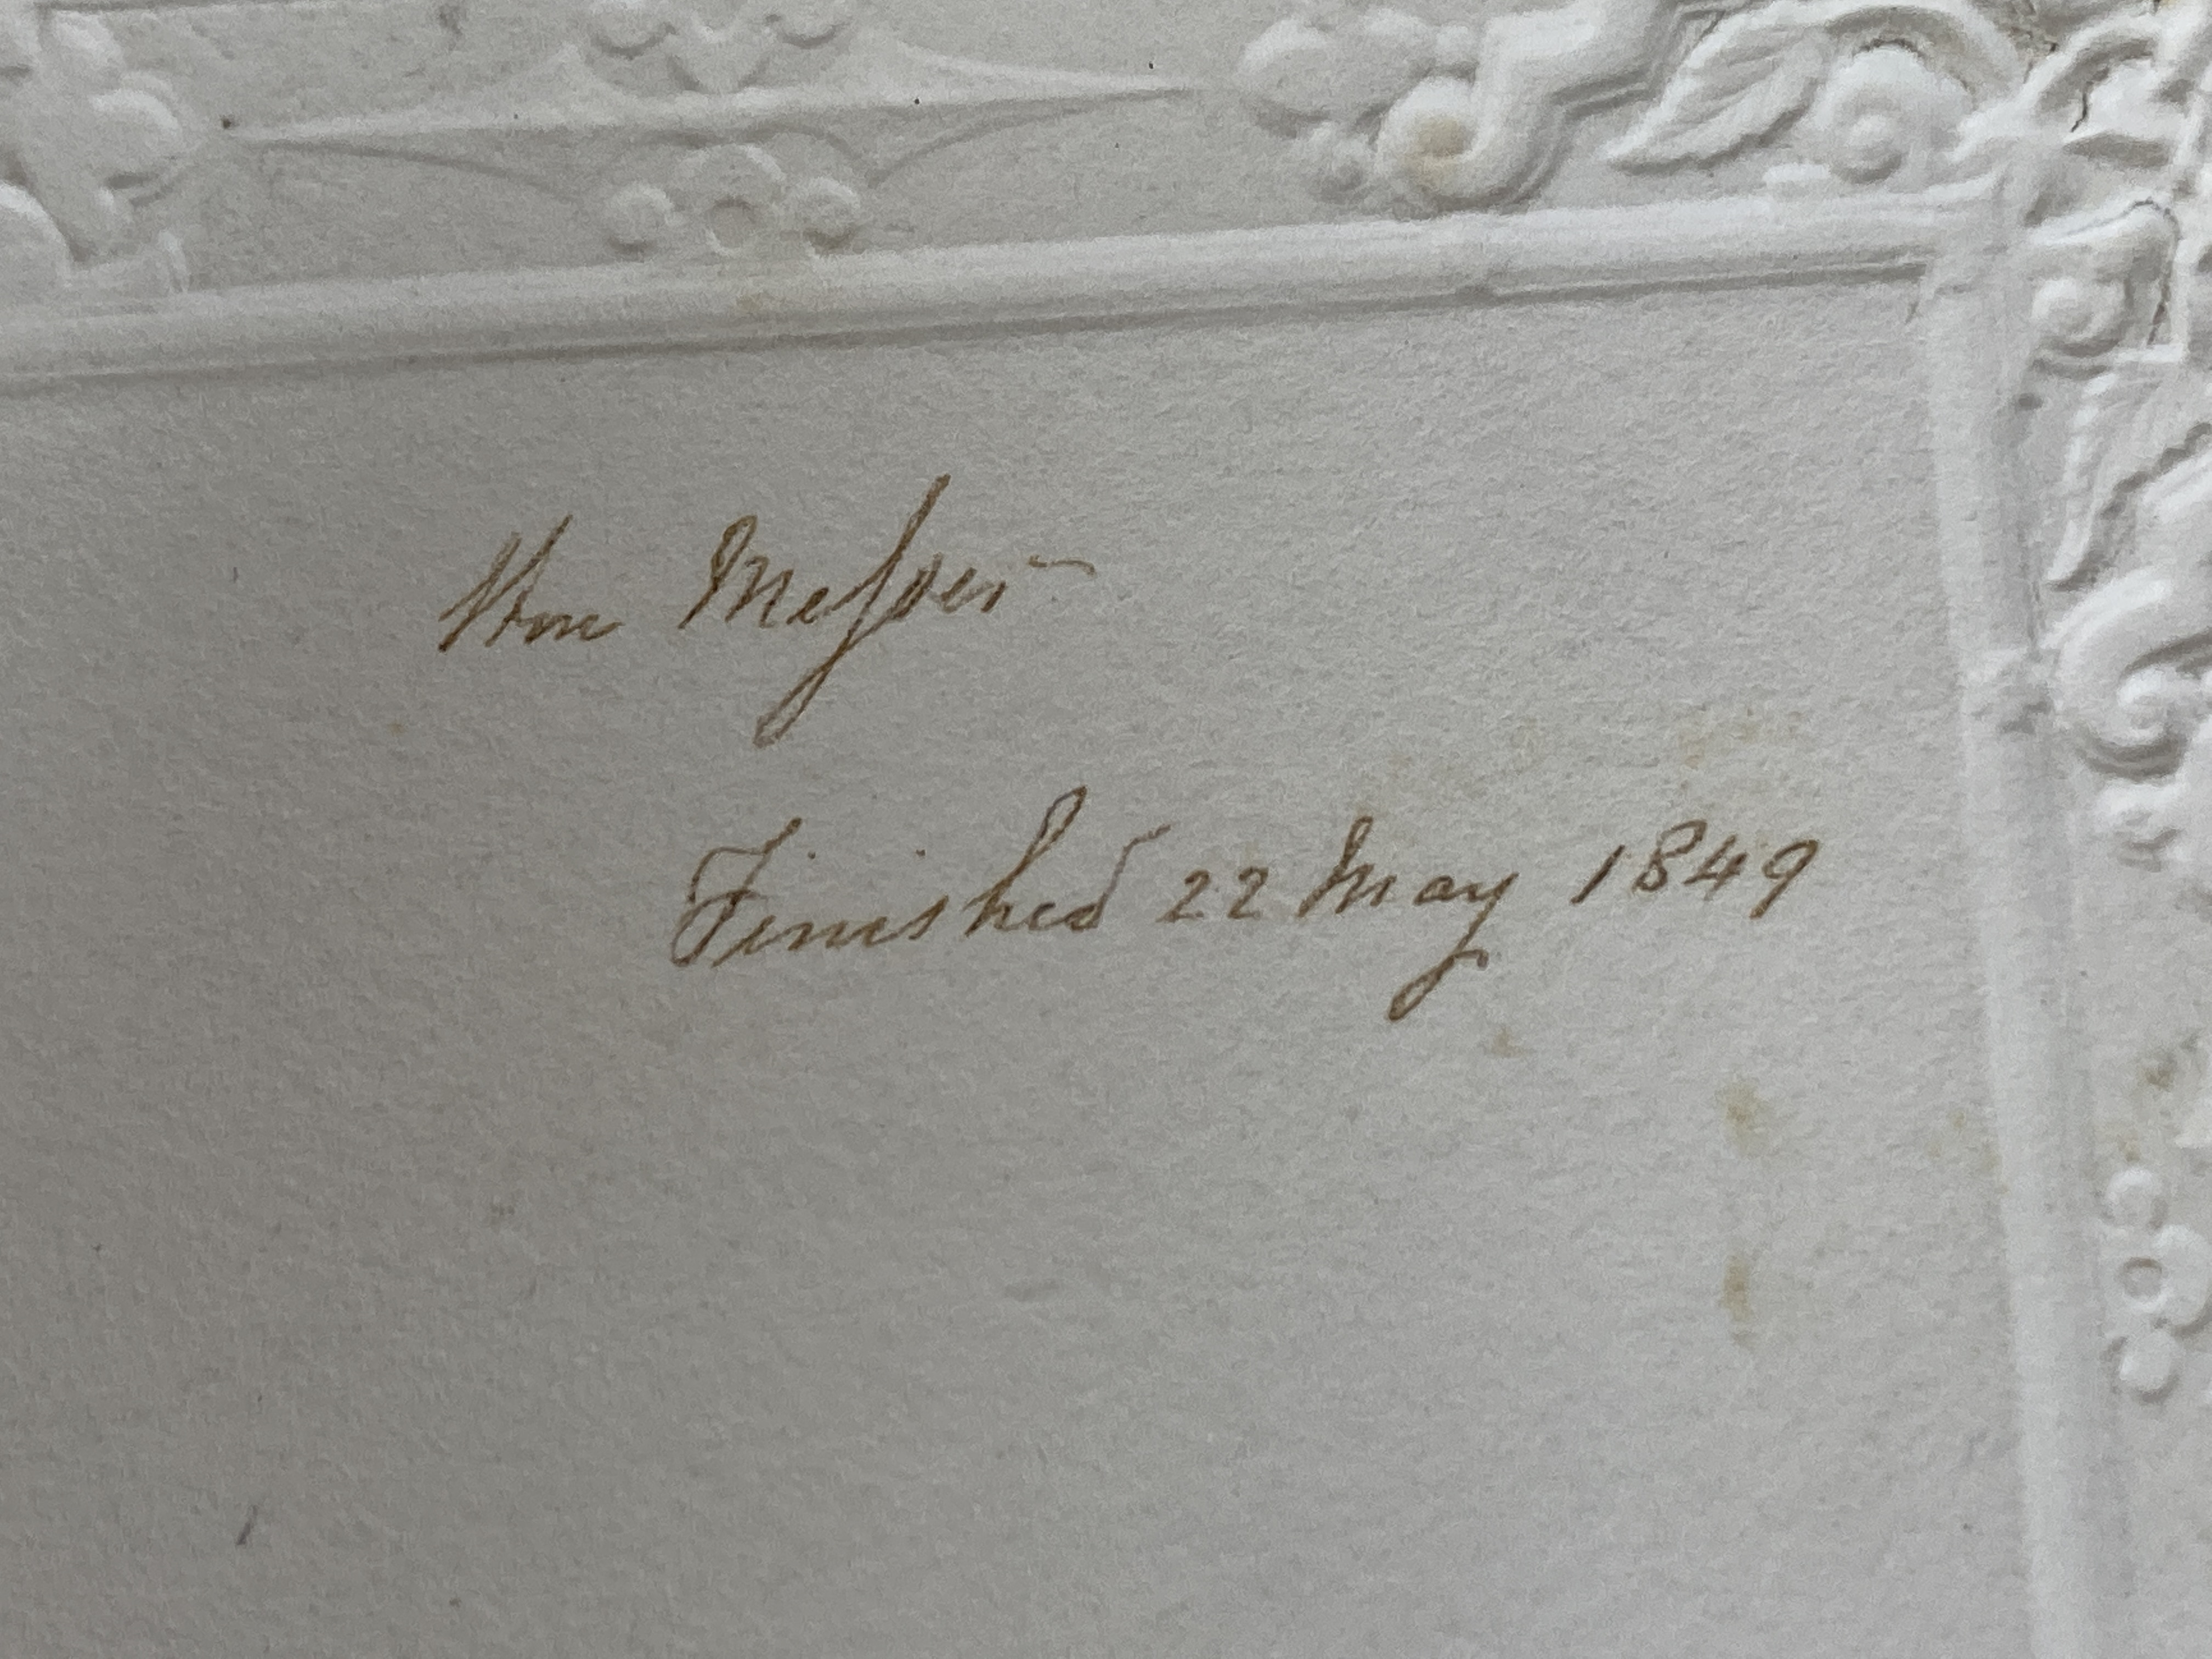 Wm Meſser
Finished 22 May 1849